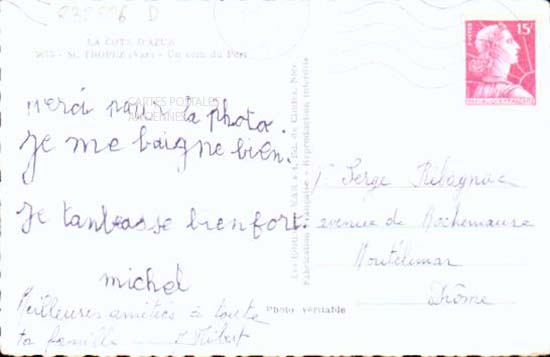 232506 D
LA COTE D'AZUR
St. TROPEZ (Var) - Un coin du Port
merci pour la photo.
CARTES POSTALES
ANCIENNES
je me baigne bien.
je t'embrasse bien fort.
michel
Meilleures amitiés à toute
ta famille
Photo véritable
Fabrication Française - Reproduction interdite
POSTES
15F
Serge Ribagnac
avenue de Rochemaure
Montélimar
Drôme